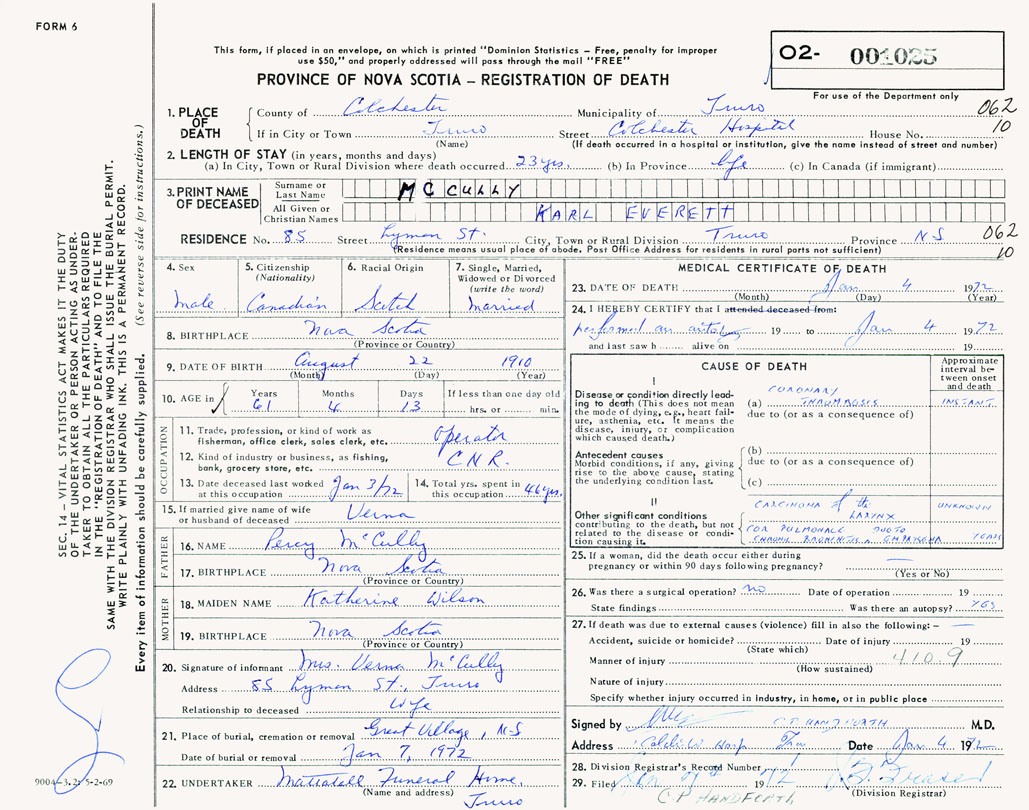 FORM 6
This form, if placed in an envelope, on which is printed "Dominion Statistics – Free, penalty for improper
use $50," and properly addressed will pass through the mail "FREE"
PROVINCE OF NOVA SCOTIA – REGISTRATION OF DEATH
O2- 001025
For use of the Department only
SEC. 14 – VITAL STATISTICS ACT MAKES IT THE DUTY
OF THE UNDERTAKER OR PERSON ACTING AS UNDER-
TAKER TO OBTAIN ALL THE PARTICULARS REQUIRED
IN THE "REGISTRATION OF DEATH" AND TO FILE THE
SAME WITH THE DIVISION REGISTRAR WHO SHALL ISSUE THE BURIAL PERMIT.
WRITE PLAINLY WITH UNFADING INK. THIS IS A PERMANENT RECORD.
Every item of information should be carefully supplied. (See reverse side for instructions.)
1. PLACE OF DEATH
County of Colchester Municipality of Truro 062
If in City or Town Truro Street Colchester Hospital House No. 10
(Name) (If death occurred in a hospital or institution, give the name instead of street and number)
2. LENGTH OF STAY (in years, months and days)
(a) In City, Town or Rural Division where death occurred 23 yrs. (b) In Province life (c) In Canada (if immigrant)
3. PRINT NAME OF DECEASED
Surname or Last Name MCCULLY
All Given or Christian Names KARL EVERETT
RESIDENCE No. 85 Street Lyman St. City, Town or Rural Division Truro Province N.S. 062
(Residence means usual place of abode. Post Office Address for residents in rural parts not sufficient) 10
4. Sex
male
5. Citizenship
(Nationality)
Canadian
6. Racial Origin
Scotch
7. Single, Married,
Widowed or Divorced
(write the word)
married
8. BIRTHPLACE Nova Scotia
(Province or Country)
9. DATE OF BIRTH August 22 1910
(Month) (Day) (Year)
10. AGE in Years Months Days If less than one day old
61 4 13 hrs. or min.
OCCUPATION
11. Trade, profession, or kind of work as
fisherman, office clerk, sales clerk, etc. Operator
12. Kind of industry or business, as fishing,
bank, grocery store, etc. C.N.R.
13. Date deceased last worked
at this occupation Jan 3/72
14. Total yrs. spent in
this occupation 46 yrs.
15. If married give name of wife
or husband of deceased Verna
FATHER
16. NAME Percy McCully
17. BIRTHPLACE Nova Scotia
(Province or Country)
MOTHER
18. MAIDEN NAME Katherine Wilson
19. BIRTHPLACE Nova Scotia
(Province or Country)
20. Signature of informant Mrs. Verna McCully
Address 85 Lyman St., Truro
Relationship to deceased Wife
21. Place of burial, cremation or removal Great Village, N-S
Date of burial or removal Jan 7, 1972
22. UNDERTAKER Mattatall Funeral Home,
(Name and address) Truro
9004-3.2: 5-2-69
MEDICAL CERTIFICATE OF DEATH
23. DATE OF DEATH Jan 4 1972
(Month) (Day) (Year)
24. I HEREBY CERTIFY that I attended deceased from:
performed an autopsy 19 to Jan 4 1972
and last saw h alive on 19
CAUSE OF DEATH
Approximate
interval be-
tween onset
and death
I
Disease or condition directly lead-
ing to death (This does not mean
the mode of dying, e.g., heart fail-
ure, asthenia, etc. It means the
disease, injury, or complication
which caused death.)
(a) CORONARY
THROMBOSIS INSTANT.
due to (or as a consequence of)
Antecedent causes
Morbid conditions, if any, giving
rise to the above cause, stating
the underlying condition last.
(b)
due to (or as a consequence of)
(c)
II
Other significant conditions
contributing to the death, but not
related to the disease or condi-
tion causing it.
CARCINOMA of the
LARYNX UNKNOWN
COR PULMONALE DUE TO
CHRONIC BRONCHITIS & EMPHYSEMA YEARS
25. If a woman, did the death occur either during
pregnancy or within 90 days following pregnancy? —
(Yes or No)
26. Was there a surgical operation? no Date of operation 19
State findings Was there an autopsy? YES
27. If death was due to external causes (violence) fill in also the following: – —
Accident, suicide or homicide? Date of injury 19
(State which)
Manner of injury 410.9
(How sustained)
Nature of injury
Specify whether injury occurred in industry, in home, or in public place
Signed by C.P. HANDFORTH M.D.
Address Colch. Co Hosp Truro Date Jan 4 1972
28. Division Registrar's Record Number
29. Filed 1972
(Division Registrar)
C.P HANDFORTH